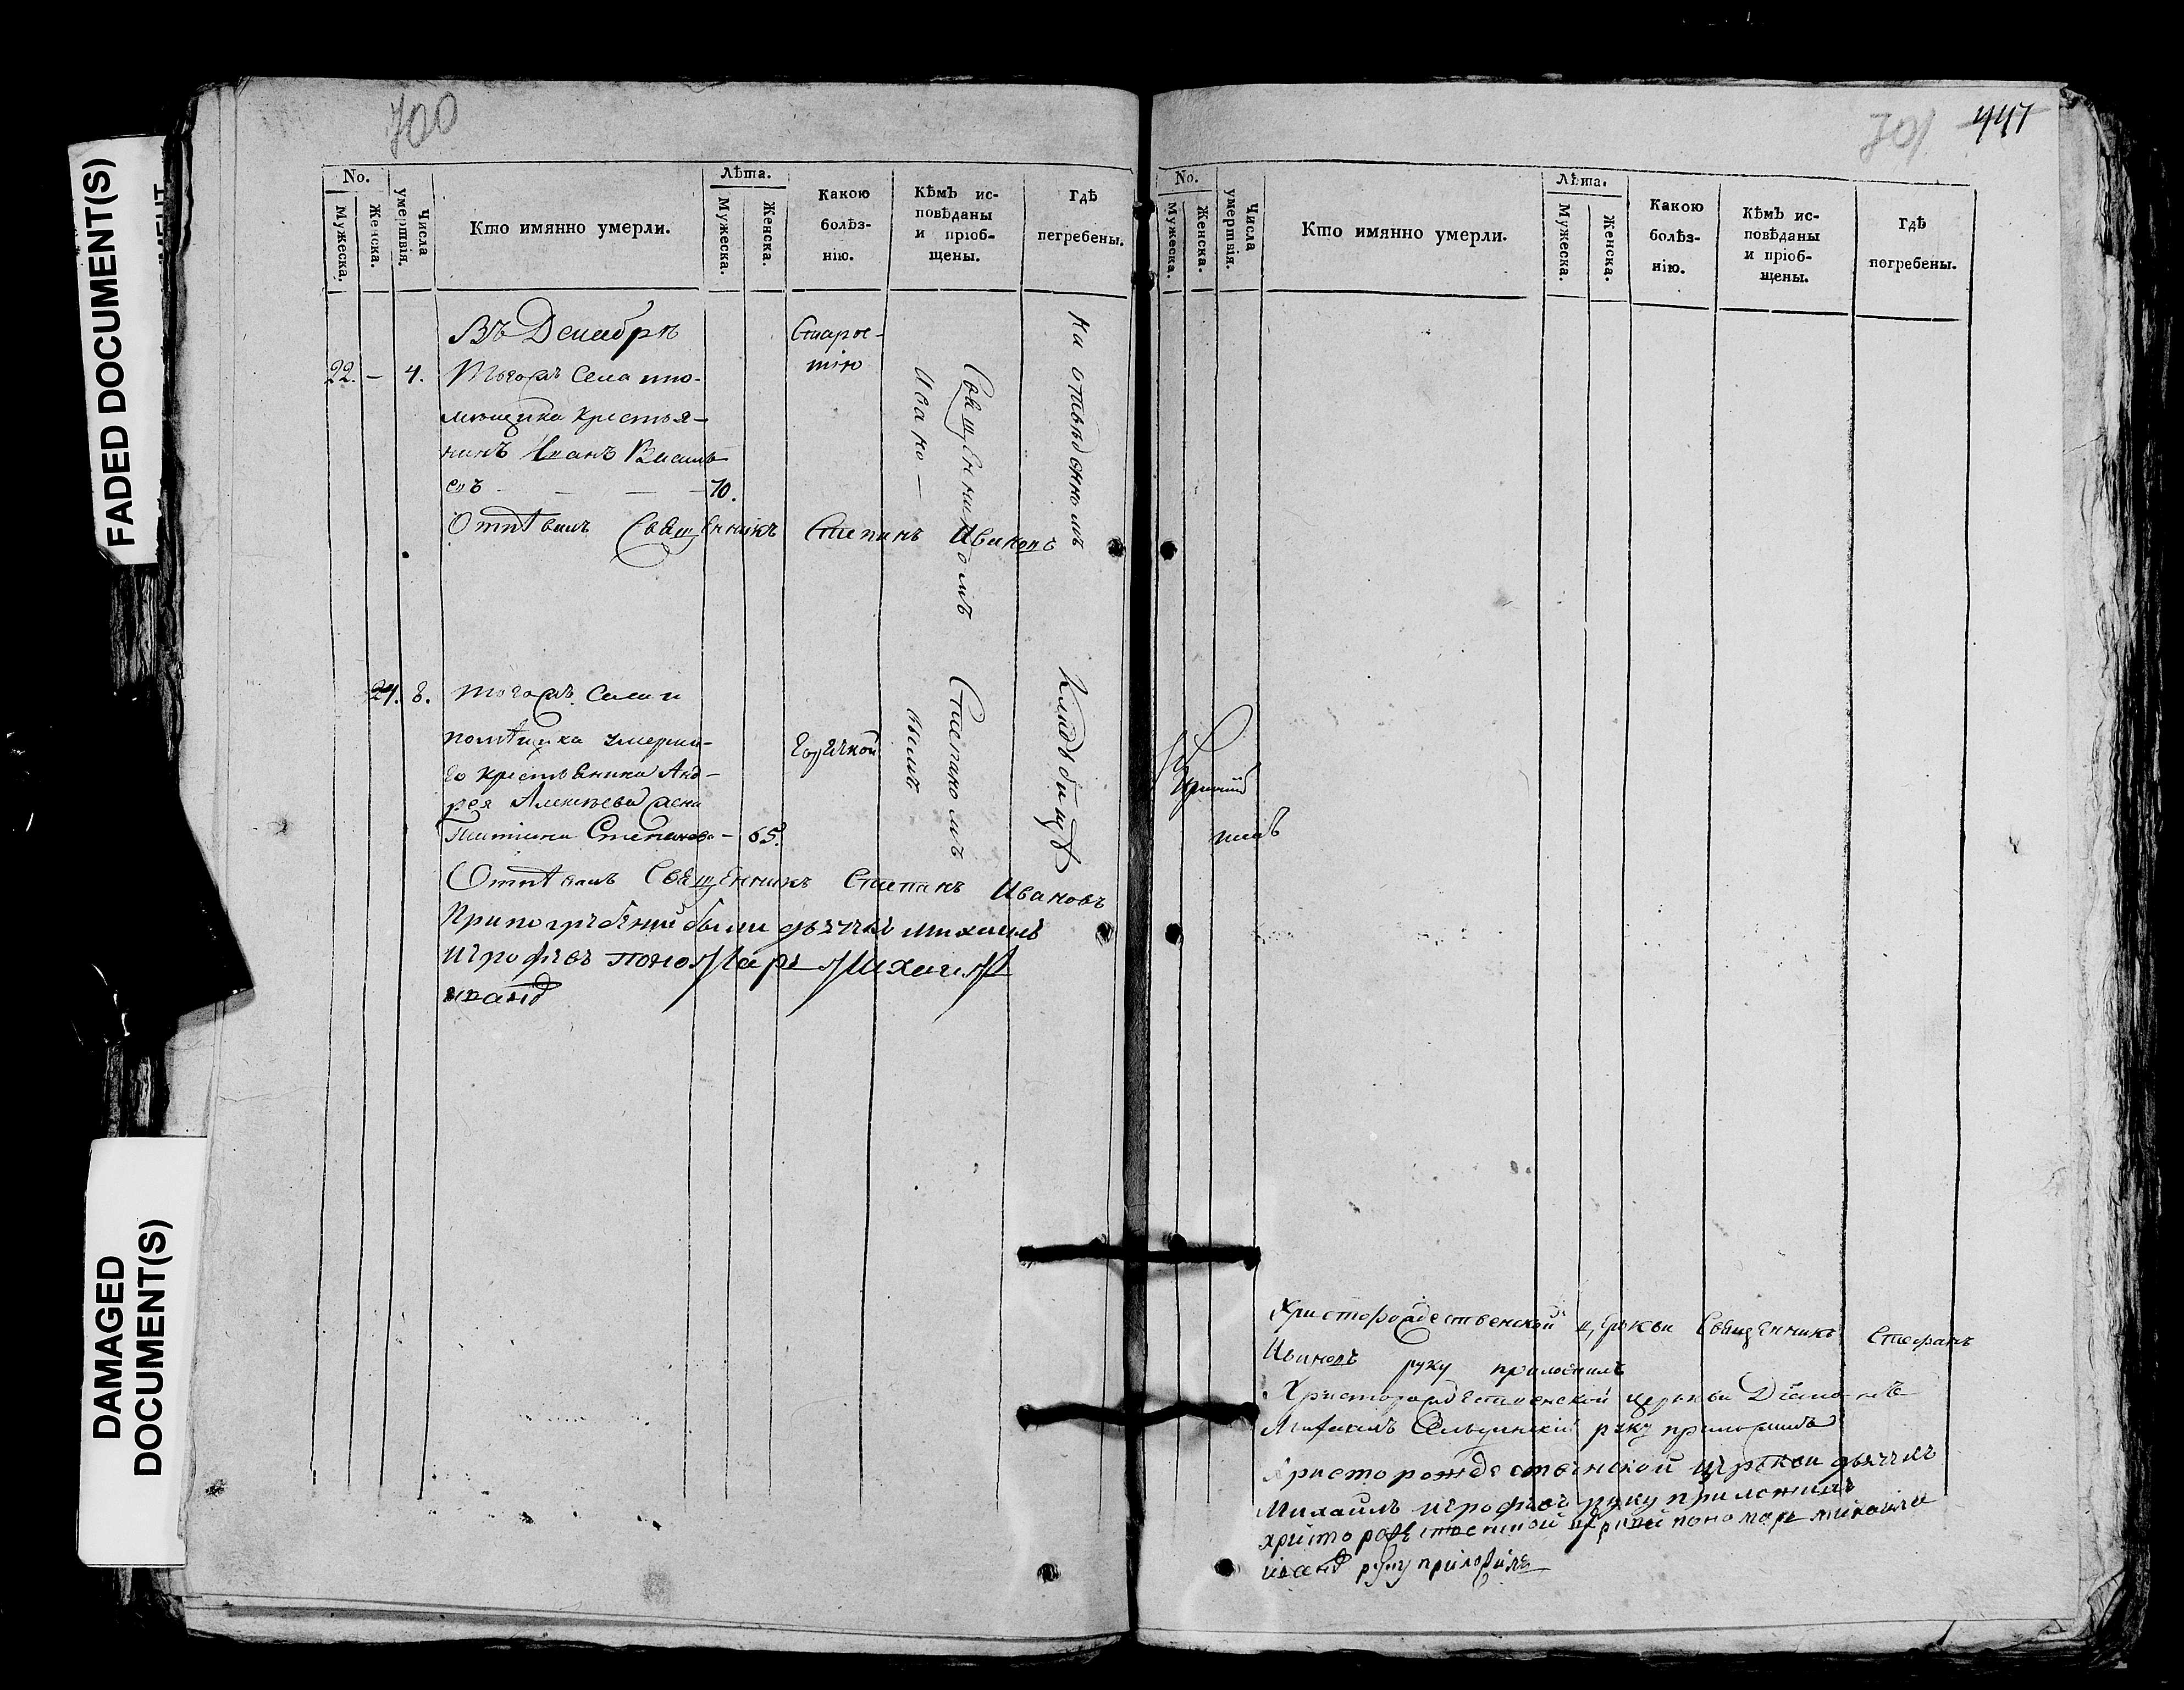 FADED DOCUMENT(S)
DAMAGED
DOCUMENT(S)
700
No.
Мужеска.
Женска.
Числа
умертвія.
Кто имянно умерли.
Лѣта.
Мужеска.
Женска.
Какою
болѣз-
нію.
Кѣмъ ис-
повѣданы
и пріоб-
щены.
Гдѣ
погребены.
Въ Декабрѣ
22. – 4. Тогожъ Села по-
мѣщика крестья-
нинъ Иванъ Василь
евъ – – – 70.
Старос-
тію
Священникомъ Степаномъ
Ивано-
вымъ
На отведенномъ
Кладбищѣ
Отпѣвалъ Священникъ Степанъ Ивановъ
24. 8. Тогожъ Села
помѣщика умерша-
го крестьянина Анд-
рея Алексѣева жена
Татіана Степанова – 65.
Горячкой
Отпѣвалъ Священникъ Степанъ Ивановъ
При погребеніи были дьячкъ михаилъ
игрофѣевъ пономарь михаил
иванъ
701
447
No.
Мужеска.
Женска.
Числа
умертвія.
Кто имянно умерли.
Лѣта.
Мужеска.
Женска.
Какою
болѣз-
нію.
Кѣмъ ис-
повѣданы
и пріоб-
щены.
Гдѣ
погребены.
Христорождественской церкви Священникъ Стефанъ
Ивановъ руку приложилъ
Христорождественской церкви Діаконъ
Михаилъ руку приложилъ
Христорождественской церкви дьячкъ
Михаилъ игрофѣевъ руку приложилъ
христорождественной церкви пономарь михаила
иванъ руку приложилъ